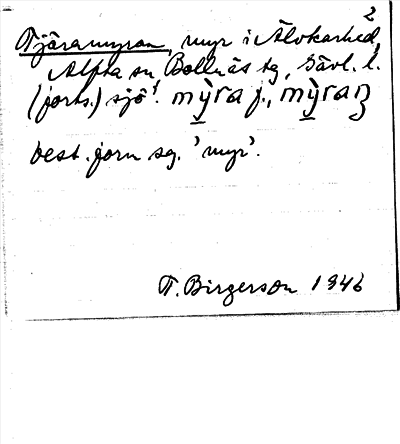 2
Tjäramyran, myr i Älvkarhed,
Alfta sn Bollnäs tg, Gävl. l.
(forts.) sjö'. mỳra f., mỳraꞃ
best. form sg. 'myr'.
T. Birgerson 1946